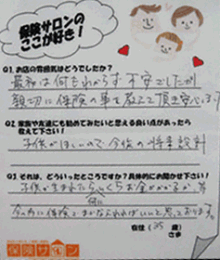 保険サロンの
ここが好き！
Q1.お店の雰囲気はどうでしたか？
最初は何もわからず不安でしたが
親切に保険の事を教えて頂き安心です
Q2.家族や友達にも勧めてみたいと思える良い点があったら
教えて下さい！
子供がほしいので 今後の将来設計
Q3.それは、どういったところですか？具体的にお聞かせ下さい！
子供が生まれたらいくらお金がかかるか、
今のうちに保険で まかなえればいいと思っております。
保険サロン
在住（25 歳）
さま